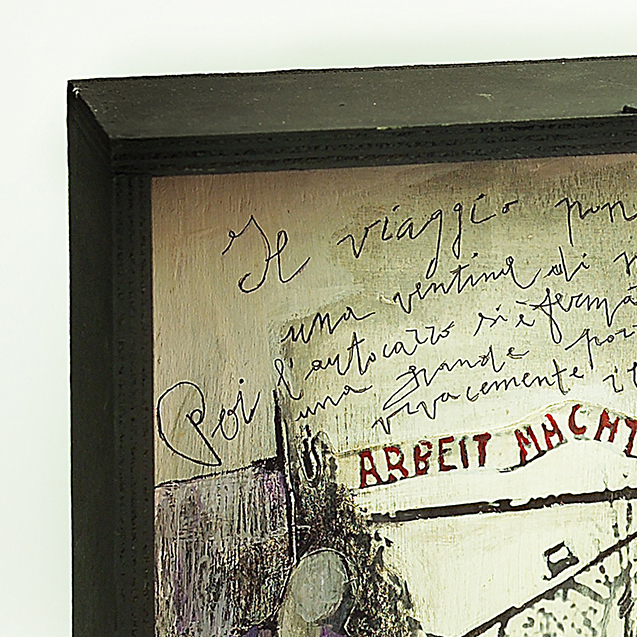 Il viaggio non
una ventina di
Poi l'autocarro si è ferma
una grande por
vivacemente
ARBEIT MACHT